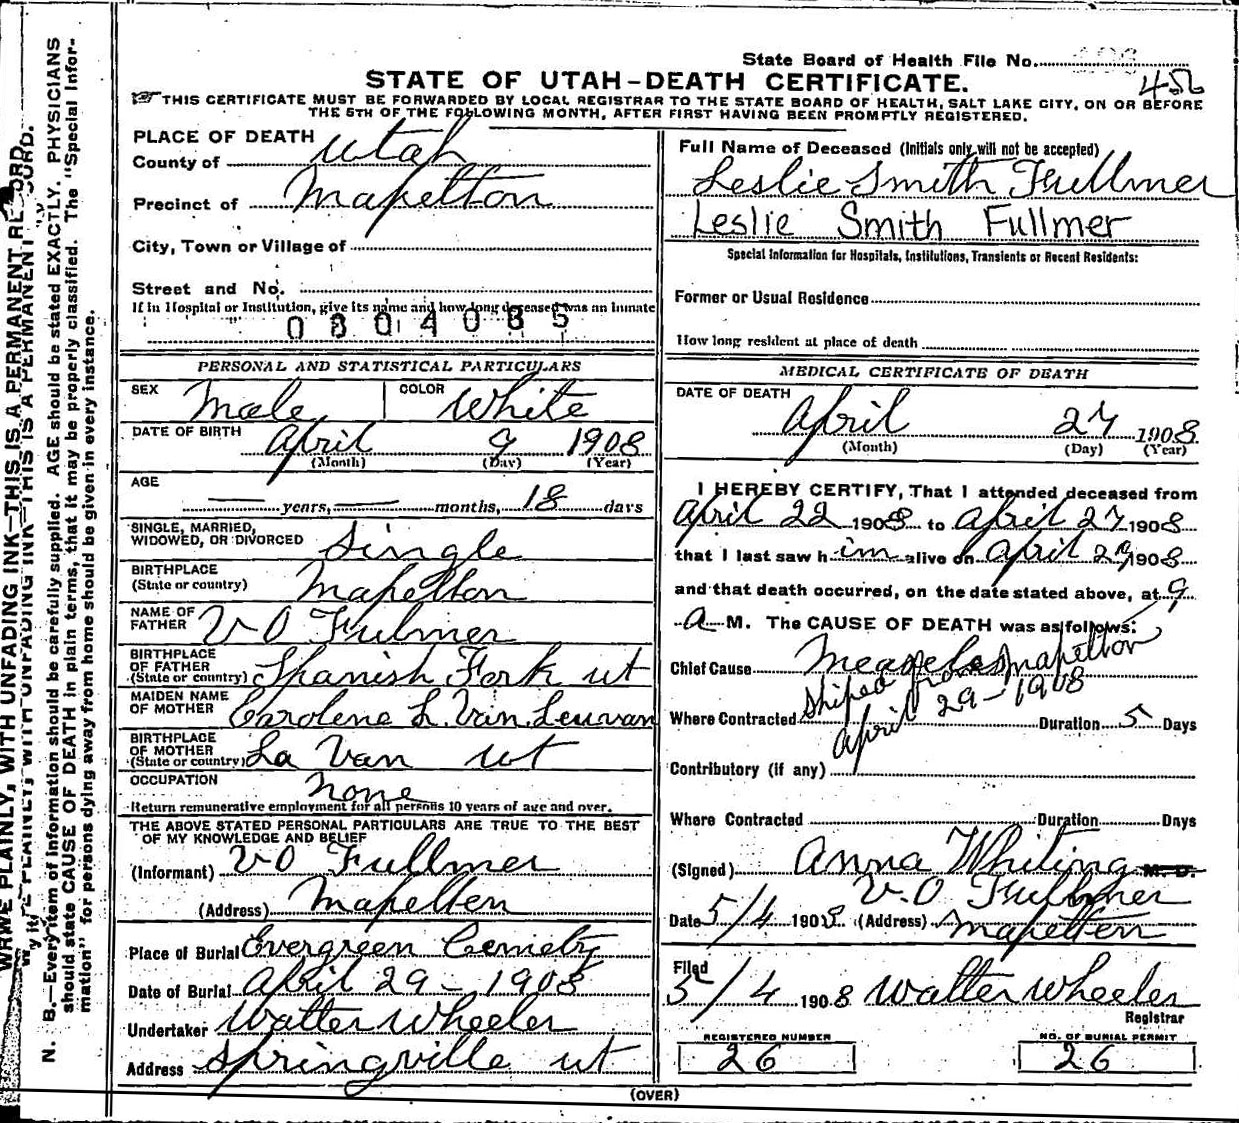 State Board of Health File No.
456
STATE OF UTAH–DEATH CERTIFICATE.
THIS CERTIFICATE MUST BE FORWARDED BY LOCAL REGISTRAR TO THE STATE BOARD OF HEALTH, SALT LAKE CITY, ON OR BEFORE
THE 5TH OF THE FOLLOWING MONTH, AFTER FIRST HAVING BEEN PROMPTLY REGISTERED.
PLACE OF DEATH
County of Utah
Precinct of Mapelton
City, Town or Village of
Street and No.
If in Hospital or Institution, give its name and how long deceased was an inmate
0304085
PERSONAL AND STATISTICAL PARTICULARS
SEX Male COLOR White
DATE OF BIRTH April 9 1908
(Month) (Day) (Year)
AGE
— years, — months, 18 days
SINGLE, MARRIED,
WIDOWED, OR DIVORCED Single
BIRTHPLACE
(State or country) Mapelton
NAME OF
FATHER V O Fulmer
BIRTHPLACE
OF FATHER
(State or country) Spanish Fork ut
MAIDEN NAME
OF MOTHER Carolene L. Van Leuvan
BIRTHPLACE
OF MOTHER
(State or country) La Van ut
OCCUPATION none
Return remunerative employment for all persons 10 years of age and over.
THE ABOVE STATED PERSONAL PARTICULARS ARE TRUE TO THE BEST
OF MY KNOWLEDGE AND BELIEF
(Informant) V O Fullmer
(Address) Mapelten
Place of Burial Evergreen Cemetry
Date of Burial April 29 – 1908
Undertaker Walter Wheeler
Address Springville ut
Full Name of Deceased (Initials only will not be accepted)
Leslie Smith Fullmer
Leslie Smith Fullmer
Special Information for Hospitals, Institutions, Transients or Recent Residents:
Former or Usual Residence
How long resident at place of death
MEDICAL CERTIFICATE OF DEATH
DATE OF DEATH
April 27 1908
(Month) (Day) (Year)
I HEREBY CERTIFY, That I attended deceased from
April 22 1908 to April 27 1908
that I last saw him alive on April 27 1908
and that death occurred, on the date stated above, at 9
a M. The CAUSE OF DEATH was as follows:
Chief Cause Measeles
Shiped from Mapelton
April 29 – 1908
Where Contracted Duration 5 Days
Contributory (if any)
Where Contracted Duration Days
(Signed) Anna Whiting M. D.
V. O Fullmer
Date 5/4 1908 (Address) Mapelten
Filed
5/4 1908 Walter Wheeler
Registrar
REGISTERED NUMBER
26
NO. OF BURIAL PERMIT
26
(OVER)
WRITE PLAINLY, WITH UNFADING INK—THIS IS A PERMANENT RECORD.
N. B.—Every item of information should be carefully supplied. AGE should be stated EXACTLY. PHYSICIANS
should state CAUSE OF DEATH in plain terms, that it may be properly classified. The "Special Infor-
mation" for persons dying away from home should be given in every instance.